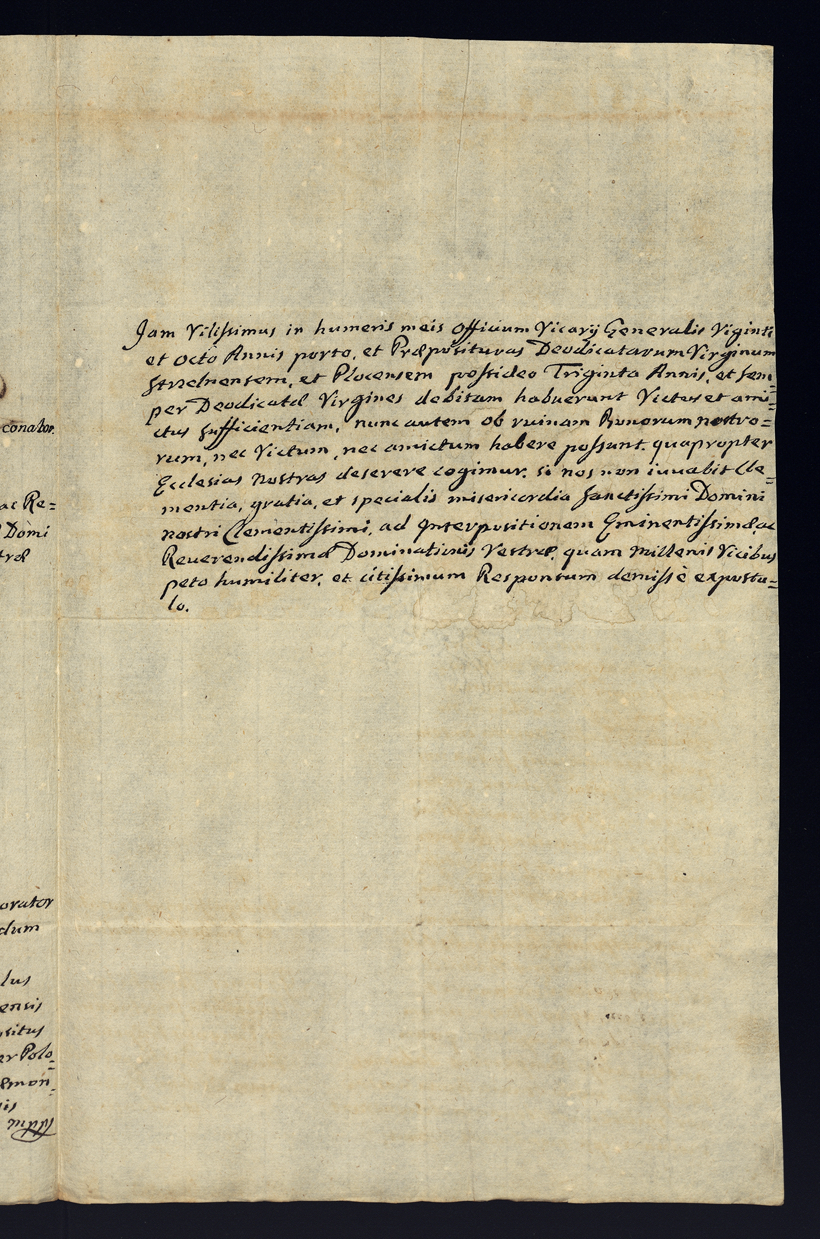 conator.
ac Re=
Domi
træ
orator
dum
lus
ensis
ositus
er Polo=
æmon=
is
mpp
Jam Vilissimus in humeris meis Officium Vicarij Generalis Viginti
et Octo Annis porto, et Præposituras Deodicatarum Virginum
Strzelnensem, et Plocensem possideo Triginta Annis, et sem=
per Deodicatæ Virgines debitam habuerunt Victus et ami=
ctus sufficientiam, nunc autem ob ruinam Bonorum nostro=
rum, nec Victum, nec amictum habere possunt. quapropter
Ecclesias nostras deserere cogimur. si nos non iuuabit Cle=
mentia, gratia, et specialis misericordia Sanctissimi Domini
nostri Clementissimi, ad Interpositionem Eminentissimæ, ac
Reuerendissimæ Dominationis Vestræ. quam millenis Vicibus
peto humiliter. et citissimum Responsum demissè expostu=
lo.